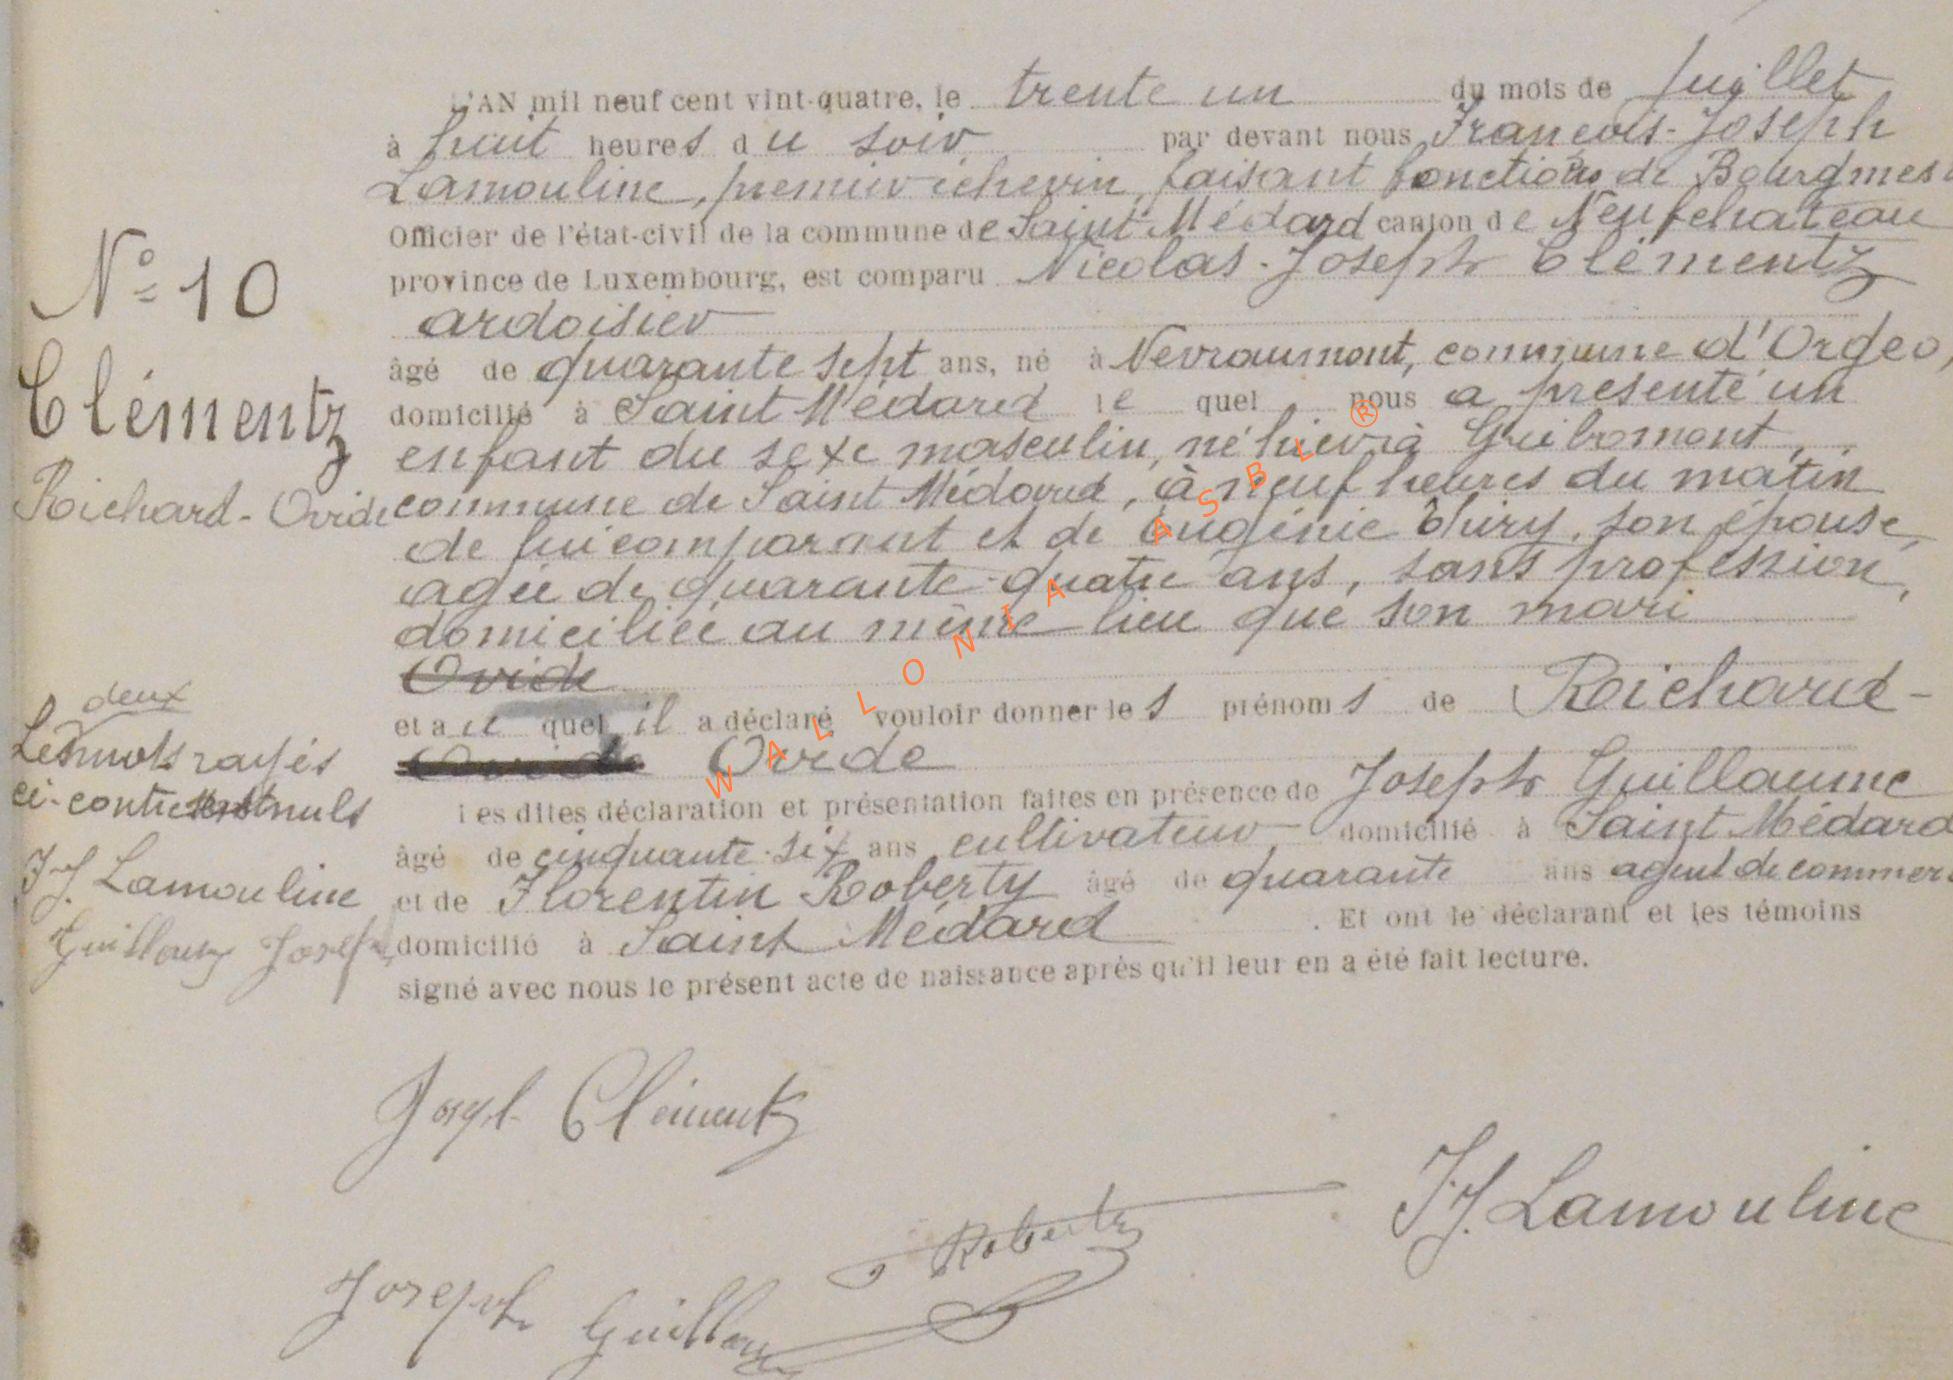 L'AN mil neuf cent vint-quatre, le trente un du mois de Juillet
à huit heures du soir par devant nous François-Joseph
Lamouline, premier échevin, faisant fonctions de Bourgmes
Officier de l'état-civil de la commune de Saint Médard canton de Neufchateau
province de Luxembourg, est comparu Nicolas-Joseph Clémentz
ardoisier
âgé de quarante sept ans, né à Nevraumont, commune d'Orgeo,
domicilié à Saint Médard le quel nous a présenté un
enfant du sexe masculin, né hier à Gribomont,
commune de Saint Médard, à neuf heures du matin
de lui comparant et de Eugénie Thiry, son épouse,
agée de quarante-quatre ans, sans profession,
domiciliée au même lieu que son mari
Ovide
et au quel il a déclaré vouloir donner les prénoms de Richard-
Ovide Ovide
Les dites déclaration et présentation faites en présence de Joseph Guillaume
âgé de cinquante-six ans cultivateur domicilié à Saint Médard
et de Florentin Roberty âgé de quarante ans agent de commer
domicilié à Saint Médard. Et ont le déclarant et les témoins
signé avec nous le présent acte de naissance après qu'il leur en a été fait lecture.
N° 10
Clémentz
Richard-Ovide
deux
Les mots rayés
ci-contre sont nuls
F.J. Lamouline
Guillaume Joseph
Joseph Clémentz
F.J. Lamouline
Roberty
Joseph Guillaume
WALLONIA ASBL ®